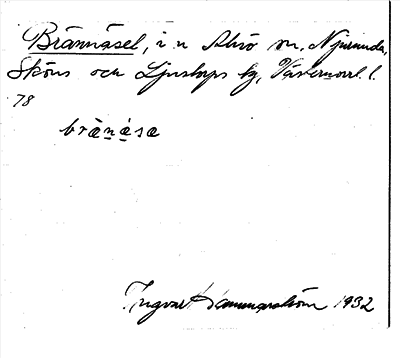 Brännäsel, i n Alnö sn, Njurunda,
Sköns och Ljustorps tg, Västernorrl. l.
78
brä̱ṉä̱sa
Ingvar Hammarström 1932